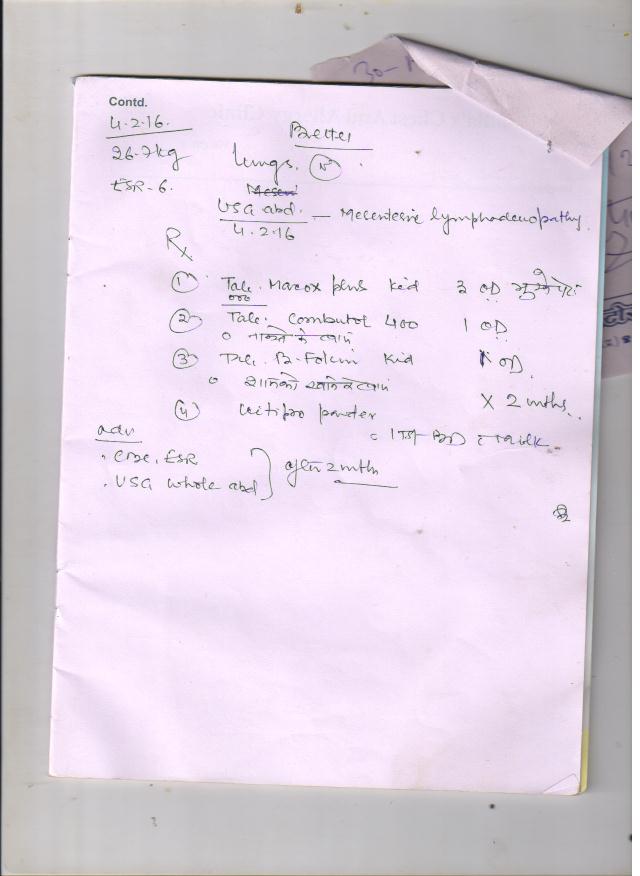 Contd.
4.2.16.
Better
26.7kg
Lungs. N
ESR - 6.
Mesen
USG abd. — Mesenteric lymphadenopathy.
4.2.16
Rx
① Tab. Macox plus Kid 3 OD
② Tab. Combutol 400 1 OD
नाश्ते के बाद
③ Tab. B-Folcin Kid 1 OD
शाम को खाने के बाद
× 2 mths.
④ powder
1 BD milk
adv
. CBC, ESR
. USG whole abd } after 2 mth
30-